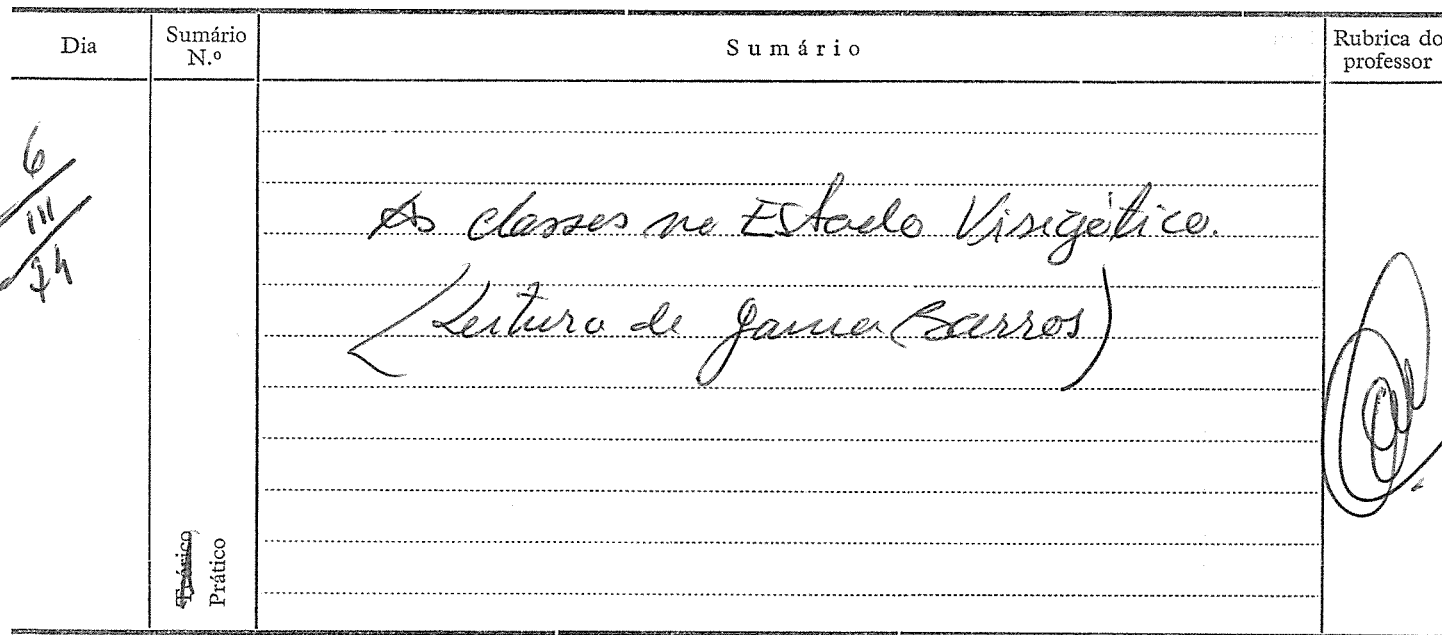 Dia
Sumário N.º
Sumário
Rubrica do professor
6/III/74
As classes no Estado Visigótico.
(Leitura de Gama Barros)
Teórico
Prático